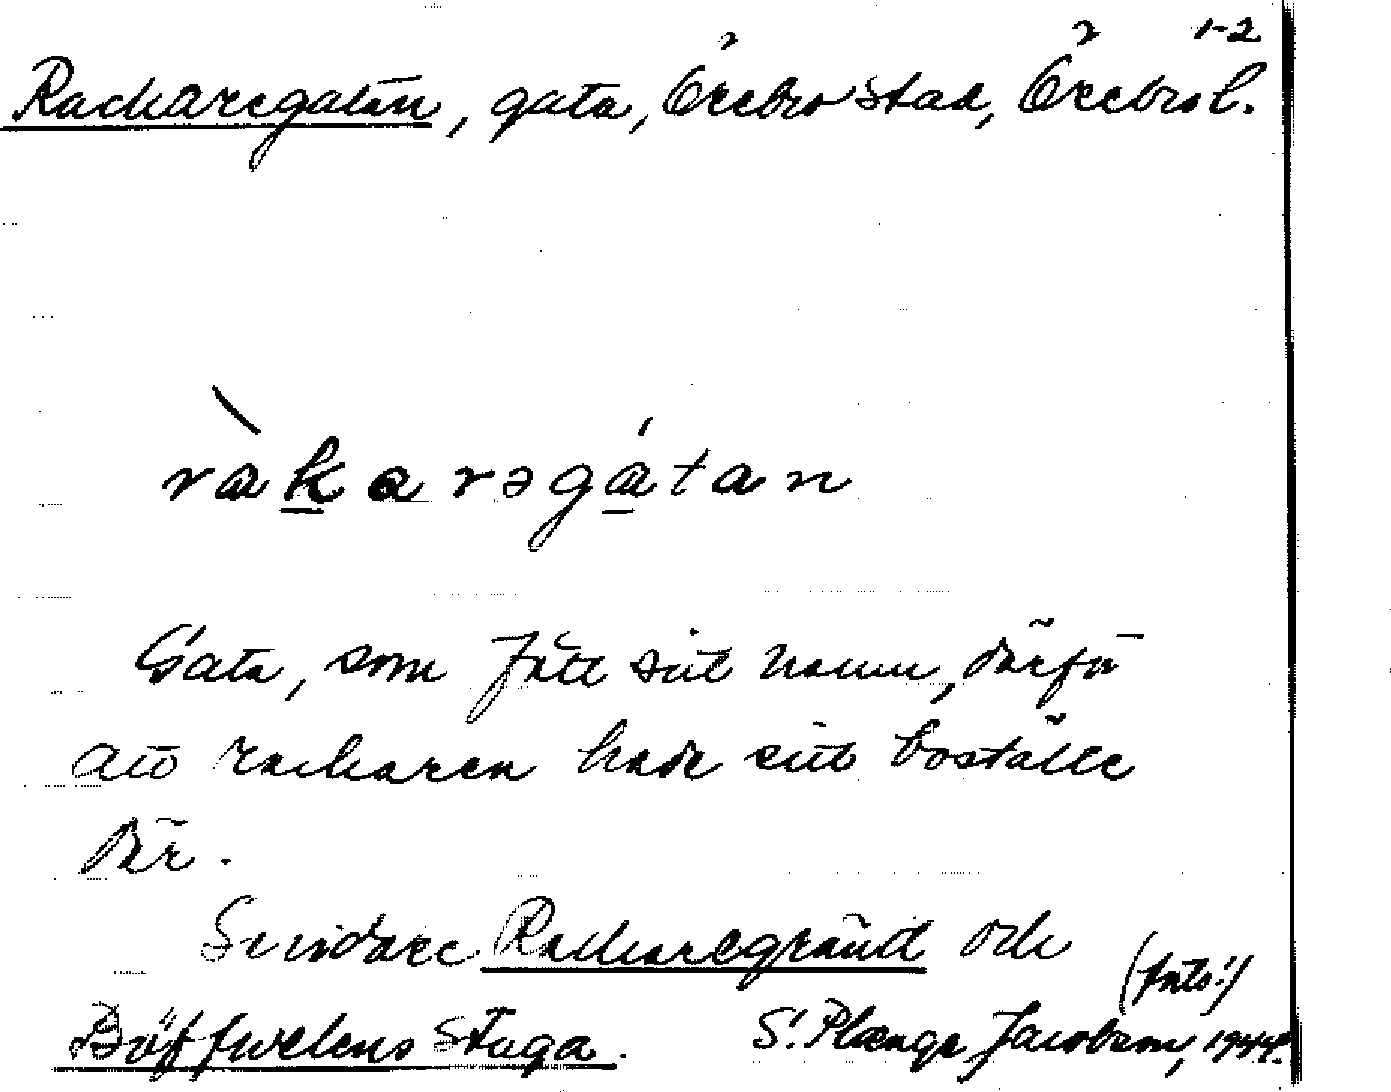 1-2
Rackaregatan, gata, Örebro stad, Örebro l.
ràkarəgátan
Gata, som fått sitt namn, därför
att rackaren hade sitt boställe
där.
Se vidare Rackaregränd och
(forts!)
Böffwelens Stuga. S. Plænge Jacobson, 1944.